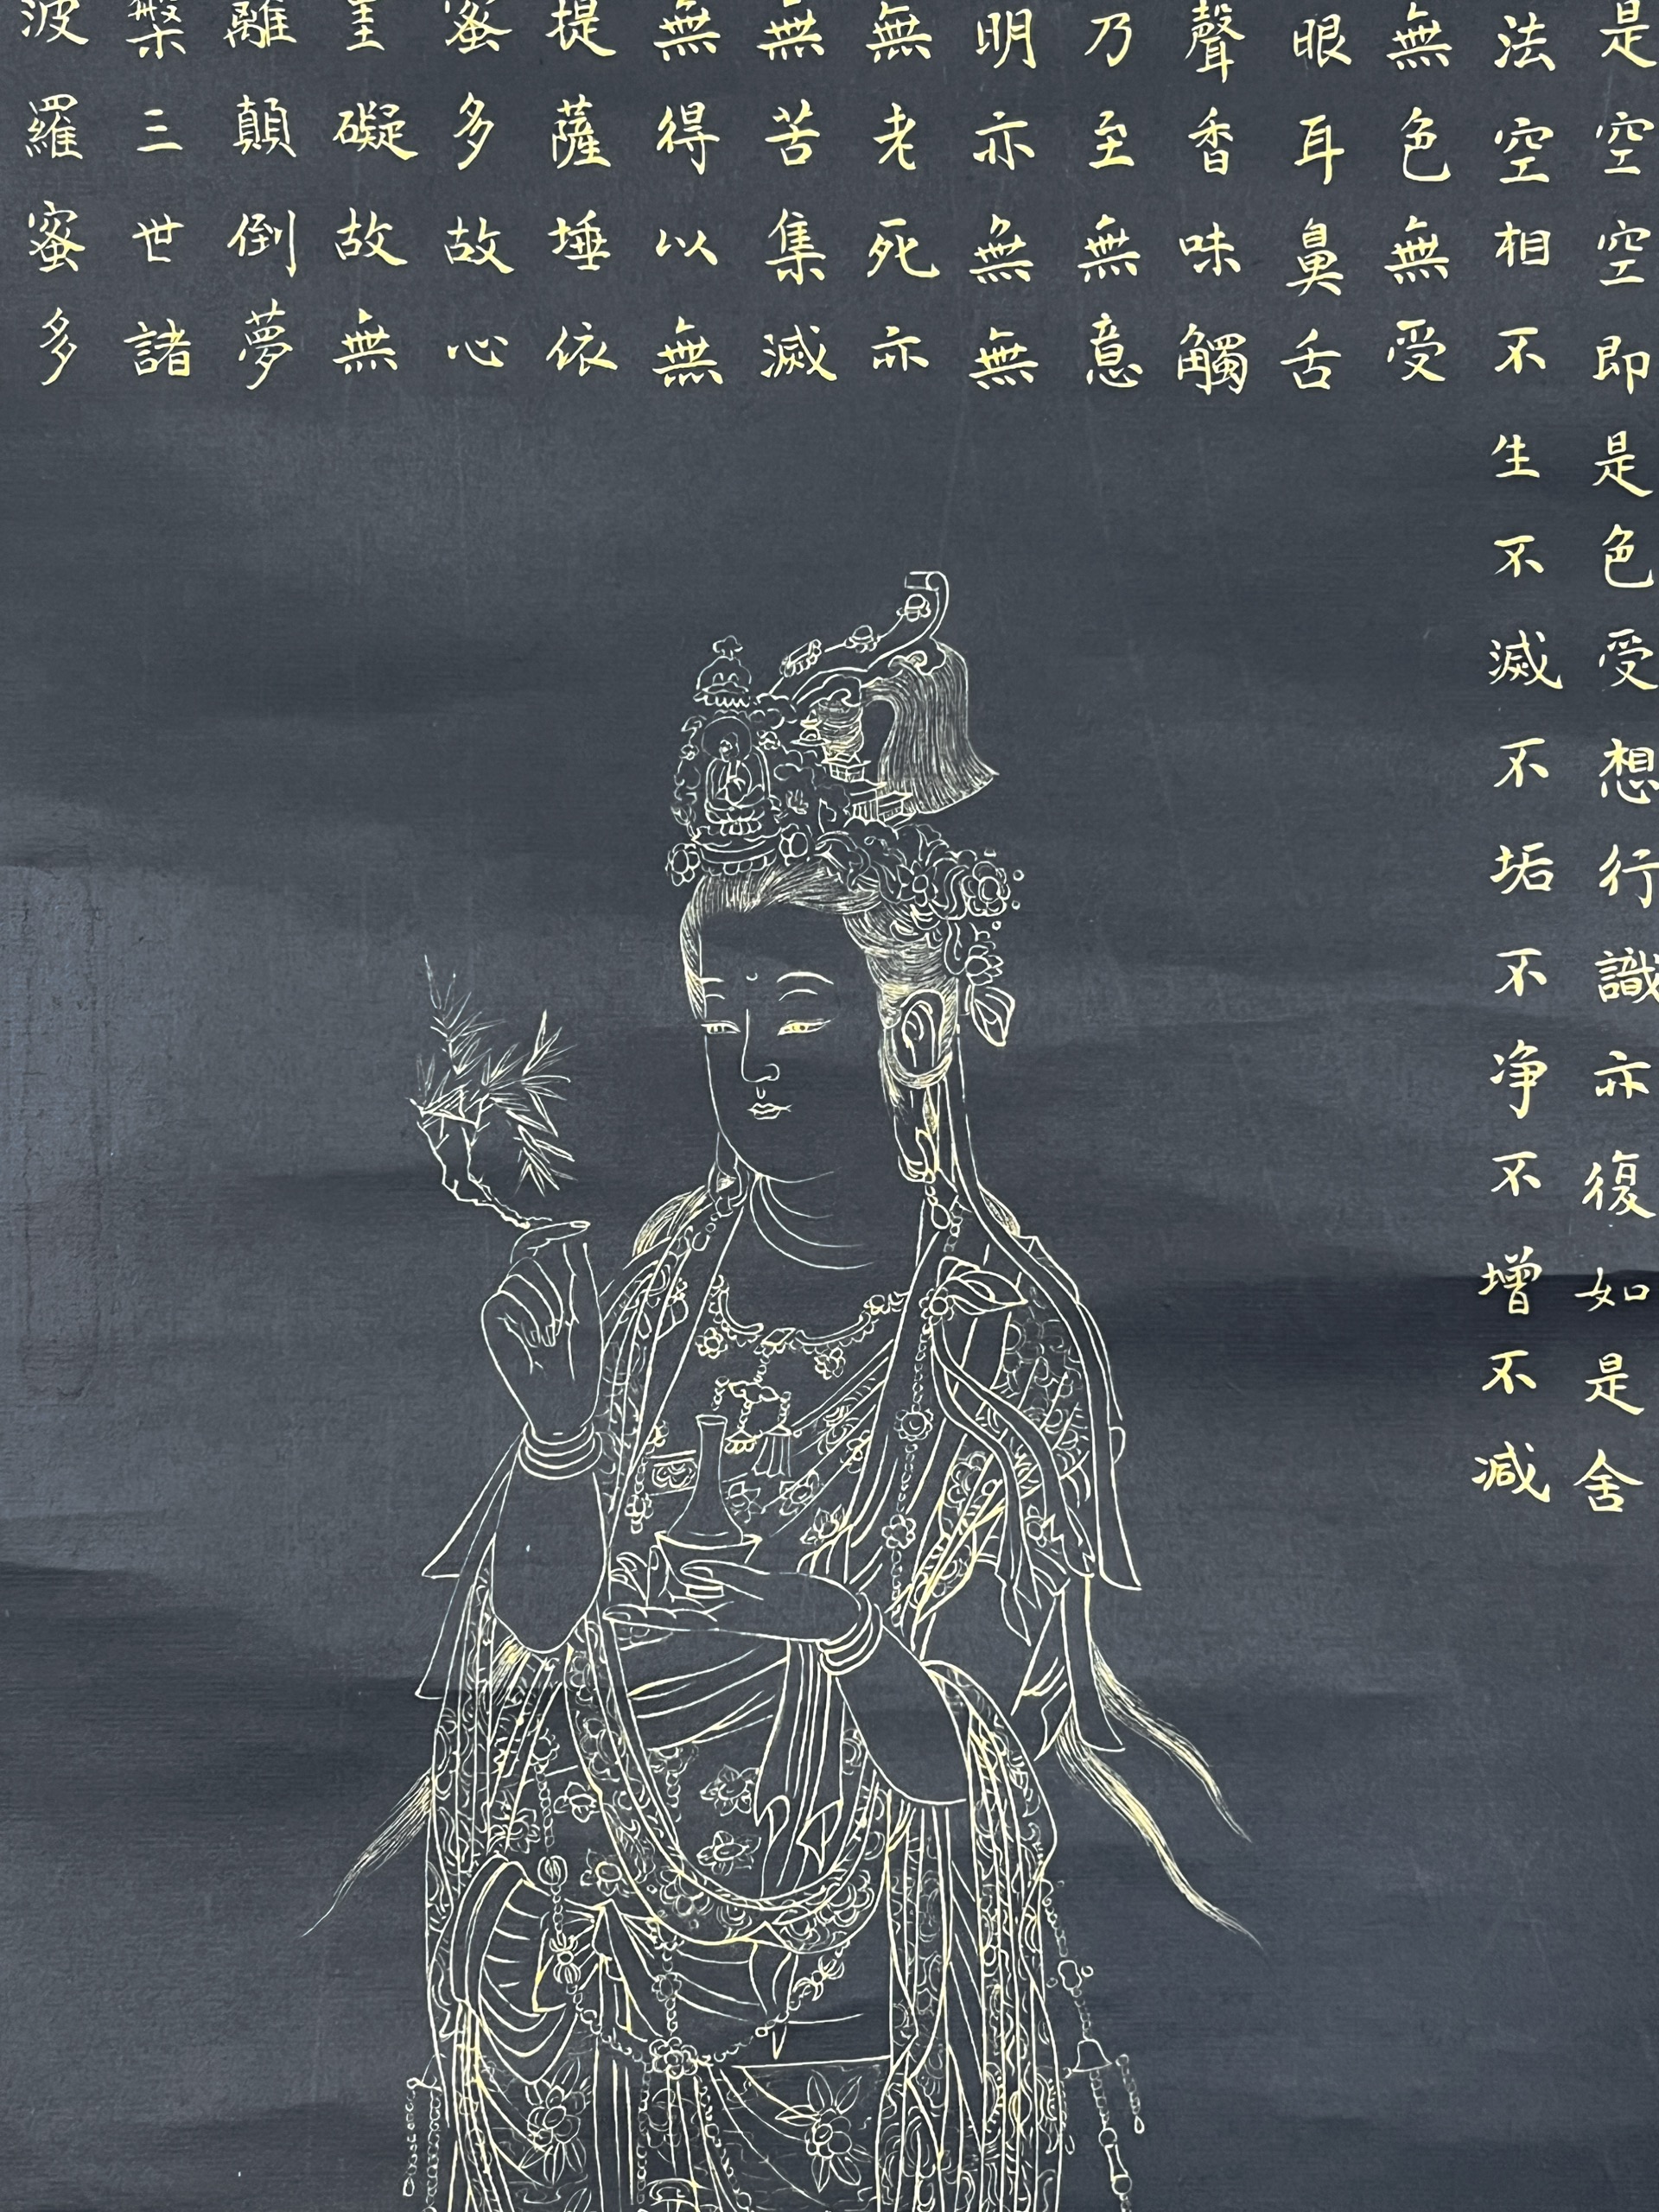 是空空即是色受想行識亦復如是舍
法空相不生不滅不垢不净不增不減
無色無受
眼耳鼻舌
聲香味觸
乃至無意
明亦無無
無老死亦
無苦集滅
無得以無
提薩埵依
蜜多故心
礙故無
離顛倒夢
槃三世諸
波羅蜜多